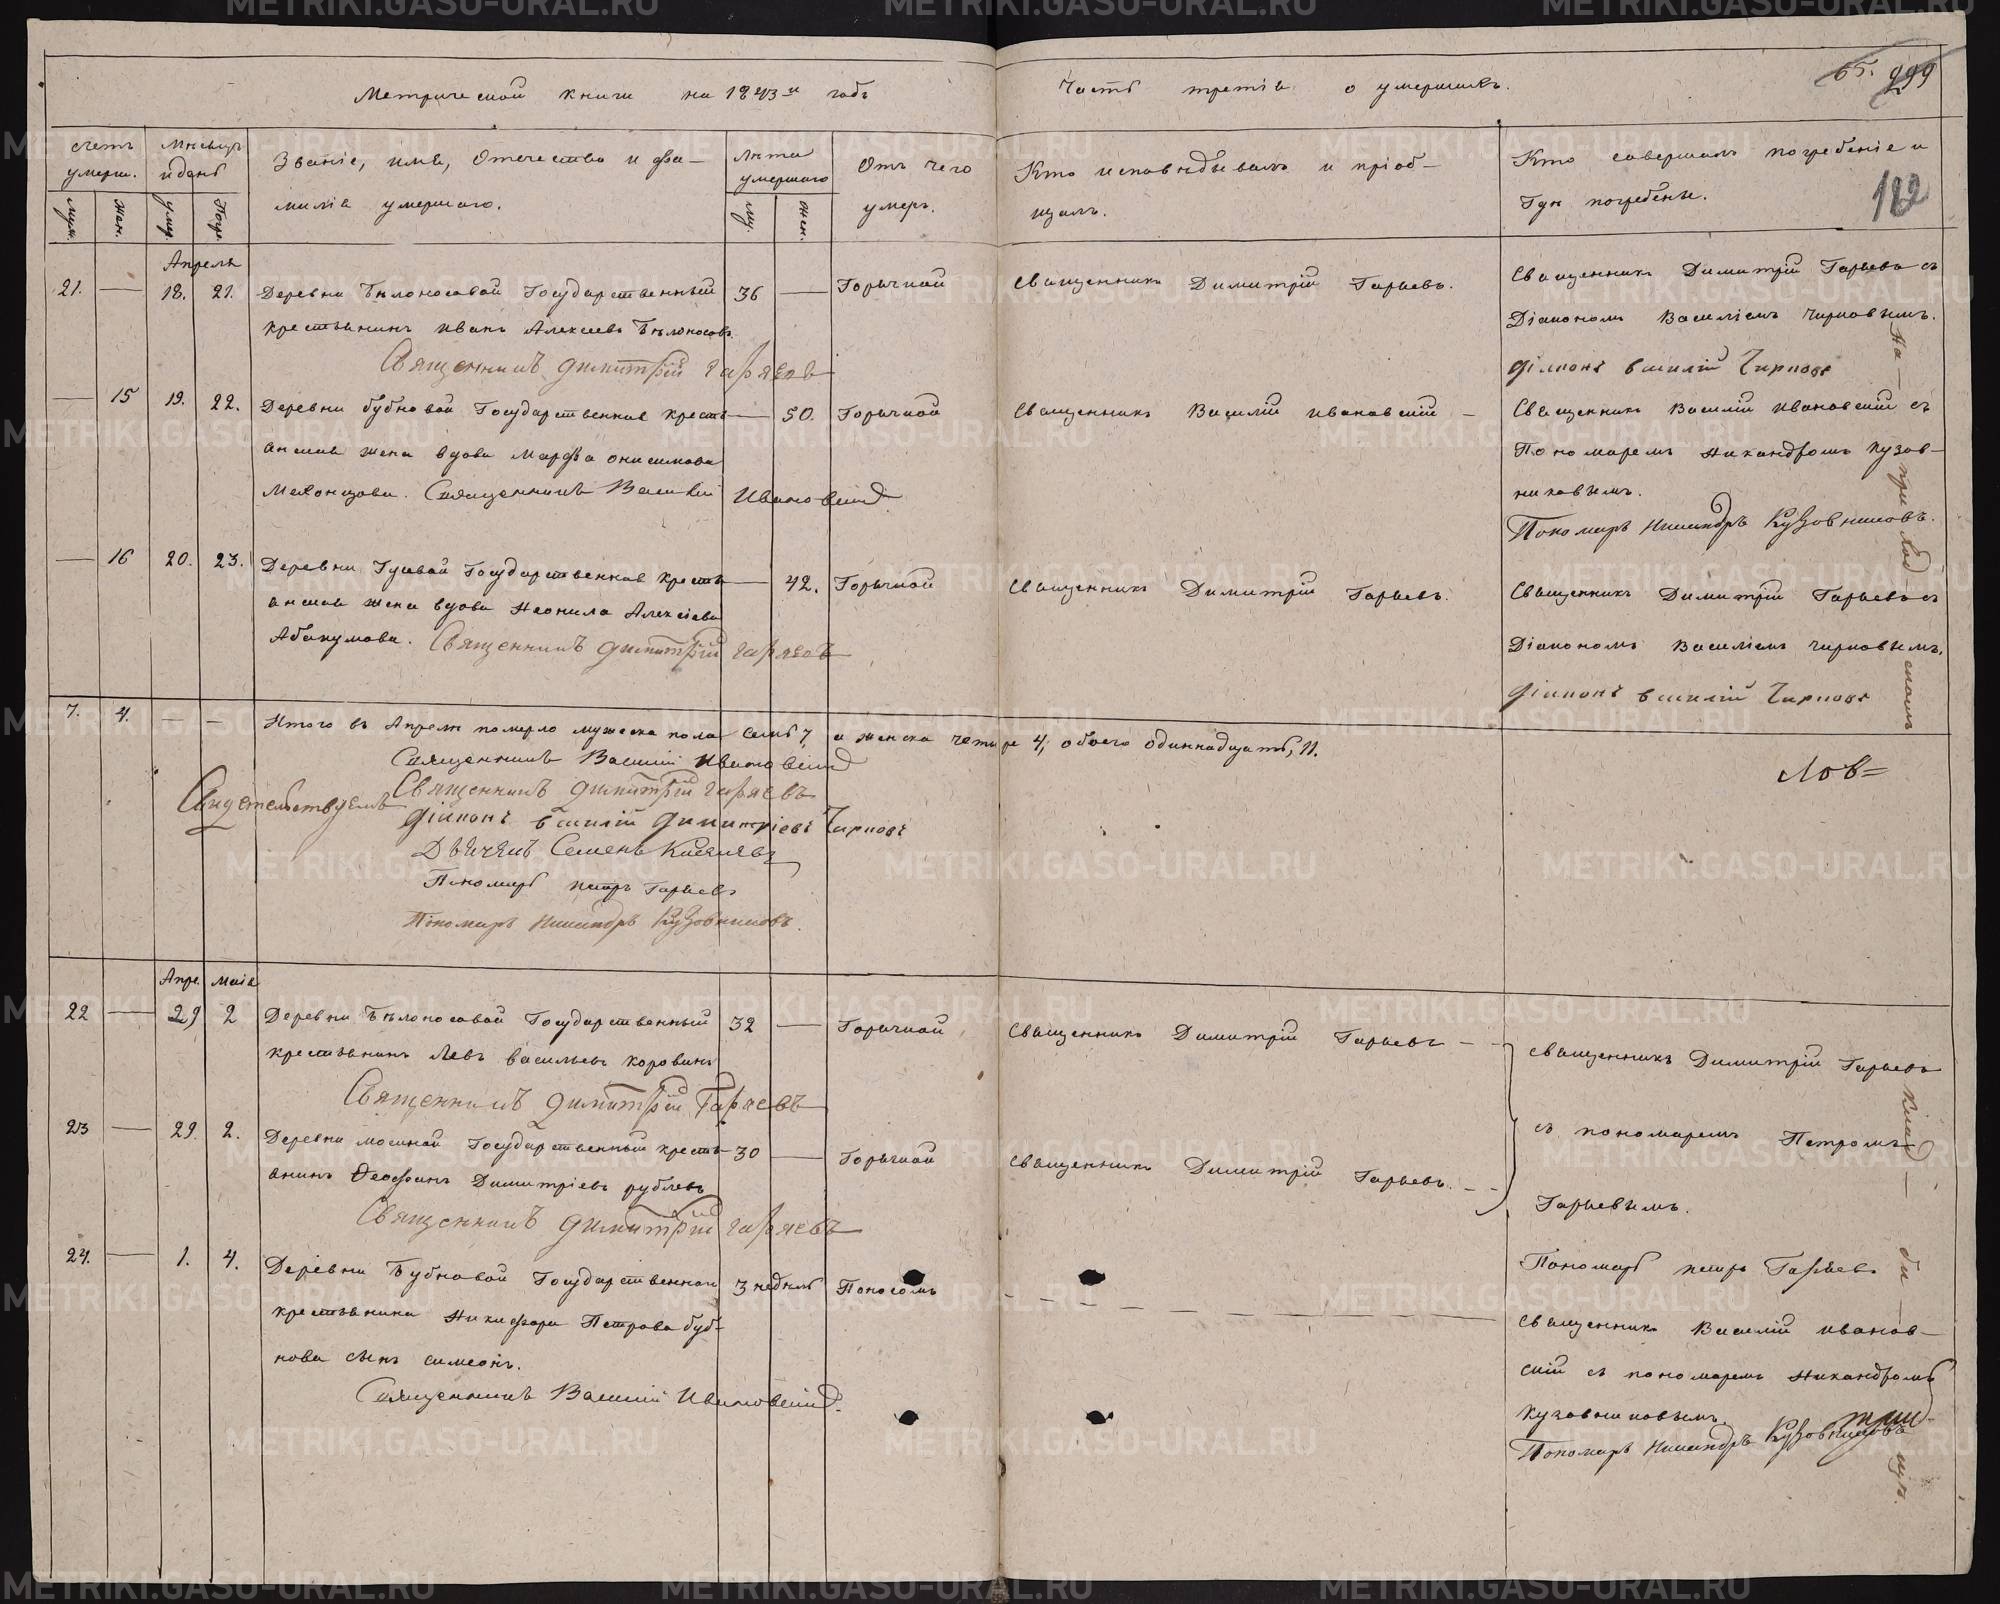 METRIKI.GASO-URAL.RU
Метрической книги на 1843й годъ
Часть третія о умершихъ.
65. 299
182
счетъ умерш.
Муж.
Жен.
Мѣсяцъ и день
умер.
Погр.
Званіе, имя, Отечество и фа-
милія умершаго.
Лѣта умершаго
му.
жен.
Отъ чего
умеръ.
Кто исповѣдывалъ и пріоб-
щалъ.
Кто совершалъ погребеніе и
Гдѣ погребены.
Апреля
21. — 18. 21. Деревни Бѣлоносовой Государственный 36 — Горячкой Священникъ Димитрій Гаряевъ. Священникъ Димитрій Гаряевъ съ
крестьянинъ Иванъ Алексѣевъ Бѣлоносовъ. Діакономъ Василіемъ Чирковымъ.
Священникъ Димитрій Гаряевъ
Діаконъ Василій Чирковъ
— 15 19. 22. Деревни бубновой Государственнаго кресть- — 50. Горячкой Священникъ Василій Ивановскій — Священникъ Василій Ивановскій съ
янина жена вдова Марфа Онисимова Пономаремъ Никандромъ Кузов-
Мехонцова. Священникъ Василій Ивановскій никовымъ.
Пономарь Никандръ Кузовниковъ.
— 16 20. 23. Деревни Гусевой Государственнаго кресть- — 42. Горячкой Священникъ Димитрій Гаряевъ. Священникъ Димитрій Гаряевъ съ
янина жена вдова Неонила Алексіева
Абакумова. Священникъ Димитрій Гаряевъ Діакономъ Василіемъ Чирковымъ.
Діаконъ Василій Чирковъ
7. 4. — — Итого въ Апреле померло мужеска пола семь 7, а женска четыре 4, обоего одиннадцать, 11.
Священникъ Василій Ивановскій
Свидетельствуемъ Священникъ Димитрій Гаряевъ
Діаконъ Василій Димитріевъ Чирковъ
Дьячекъ Семенъ Киселевъ
Пономарь Петръ Гаряевъ
Пономарь Никандръ Кузовниковъ.
Апре. Маія
22 — 29 2 Деревни Бѣлоносовой Государственный 32 — Горячкой Священникъ Димитрій Гаряевъ - - Священникъ Димитрій Гаряевъ
крестьянинъ Левъ Васильевъ Коровинъ
Священникъ Димитрій Гаряевъ
23 — 29. 2. Деревни мосиной Государственный кресть- 30 — Горячкой Священникъ Димитрій Гаряевъ. - - съ пономаремъ Петромъ
янинъ Феофанъ Димитріевъ рублевъ
Гаряевымъ.
Священникъ Димитрій Гаряевъ
Пономарь Петръ Гаряевъ
24. — 1. 4. Деревни Бубновой Государственнаго 3 недѣль Поносомъ — — —
крестьянина Никифора Петрова буб- Священникъ Василій Иванов-
нова сынъ симеонъ. скій съ пономаремъ Никандромъ
Священникъ Василій Ивановскій. Кузовниковымъ.
Пономарь Никандръ Кузовниковъ
На — приход — скомъ
Лов=
Клад — би — щѣ.